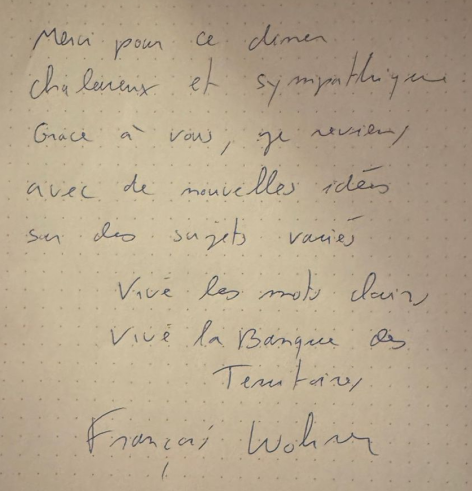 Merci pour ce diner
chaleureux et sympathique.
Grâce à vous, je reviens
avec de nouvelles idées
sur des sujets variés
Vive les mots clairs
Vive la Banque des
Territoires
François Wohrer